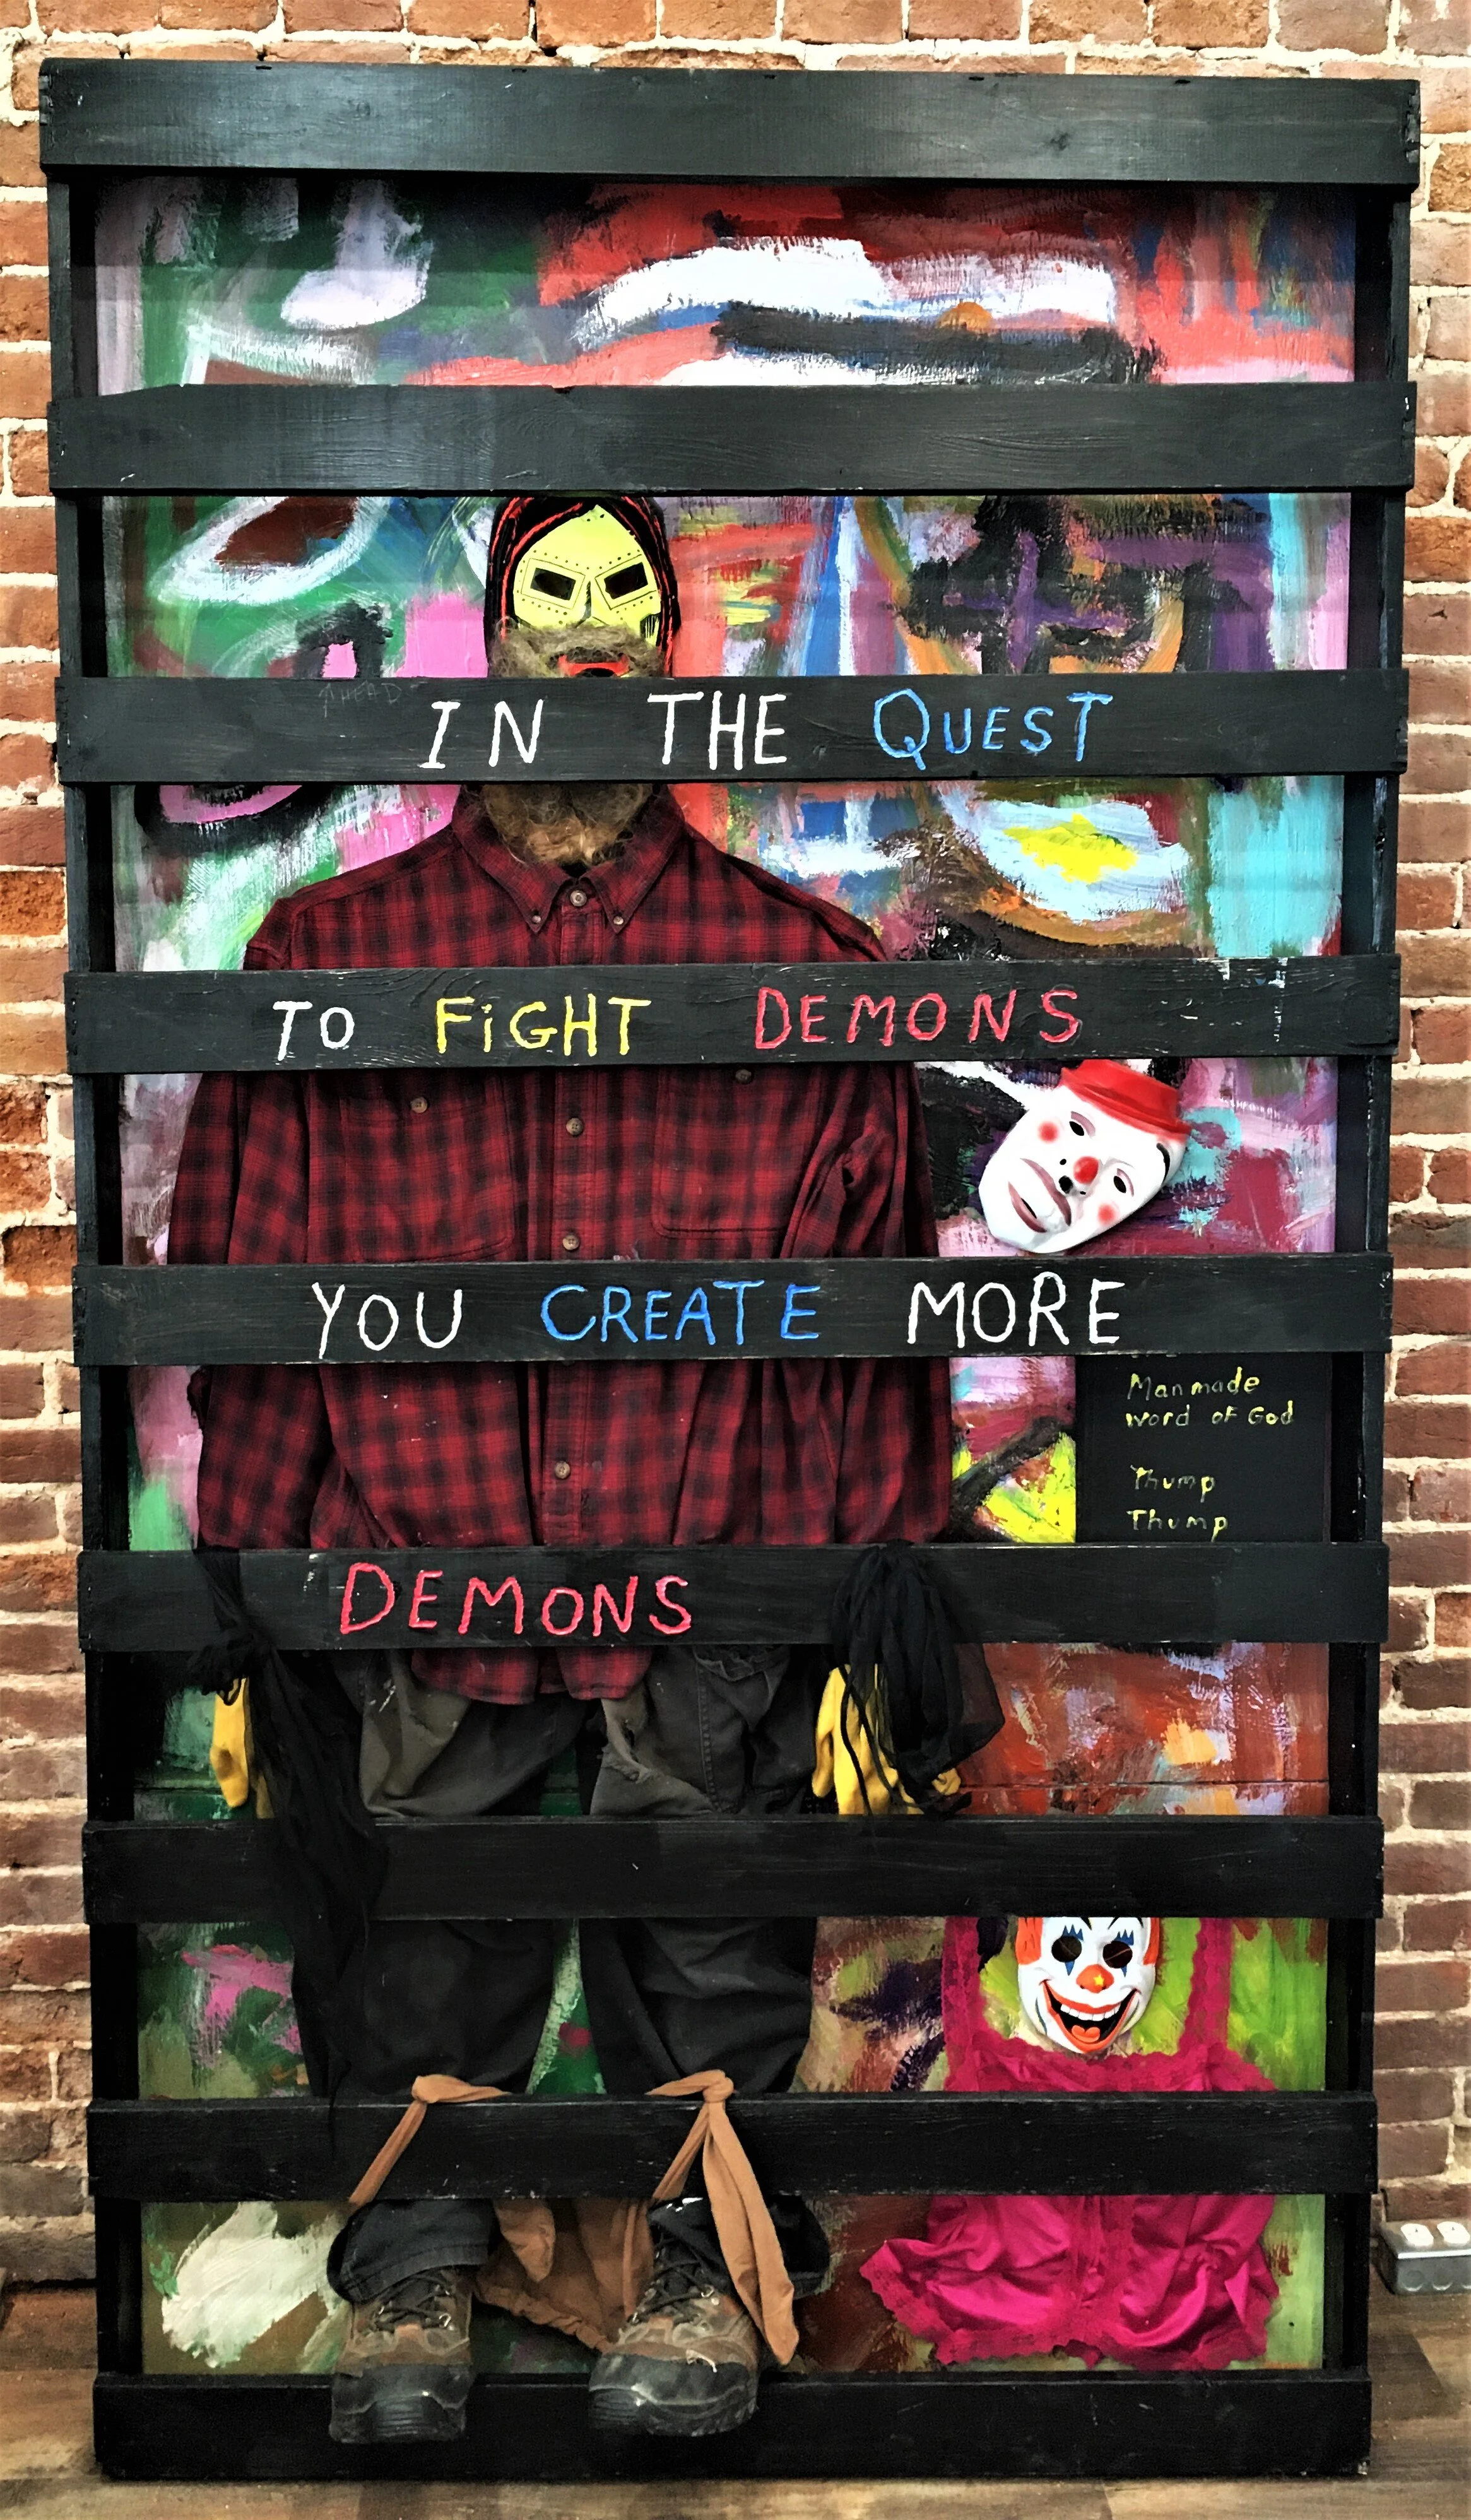 IN THE QUEST
TO FiGHT DEMONS
YOU CREATE MORE
Man made
word of God
Thump
Thump
DEMONS